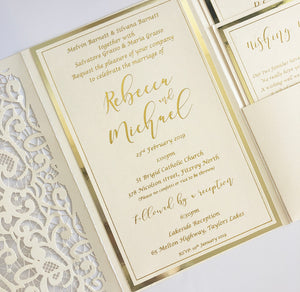 Melvin Barnett & Silvana Barnett
together with
Salvatore Grasso & Maria Grasso
Request the pleasure of your company
to celebrate the marriage of
Rebecca
and
Michael
23rd February 2019
1:00pm
St Brigid Catholic Church
378 Nicolson street, Fitzroy North
Followed by a reception
6:30pm
Lakeside Reception
65 Melton Highway, Taylors Lakes
RSVP 10th January 2019
Wishing